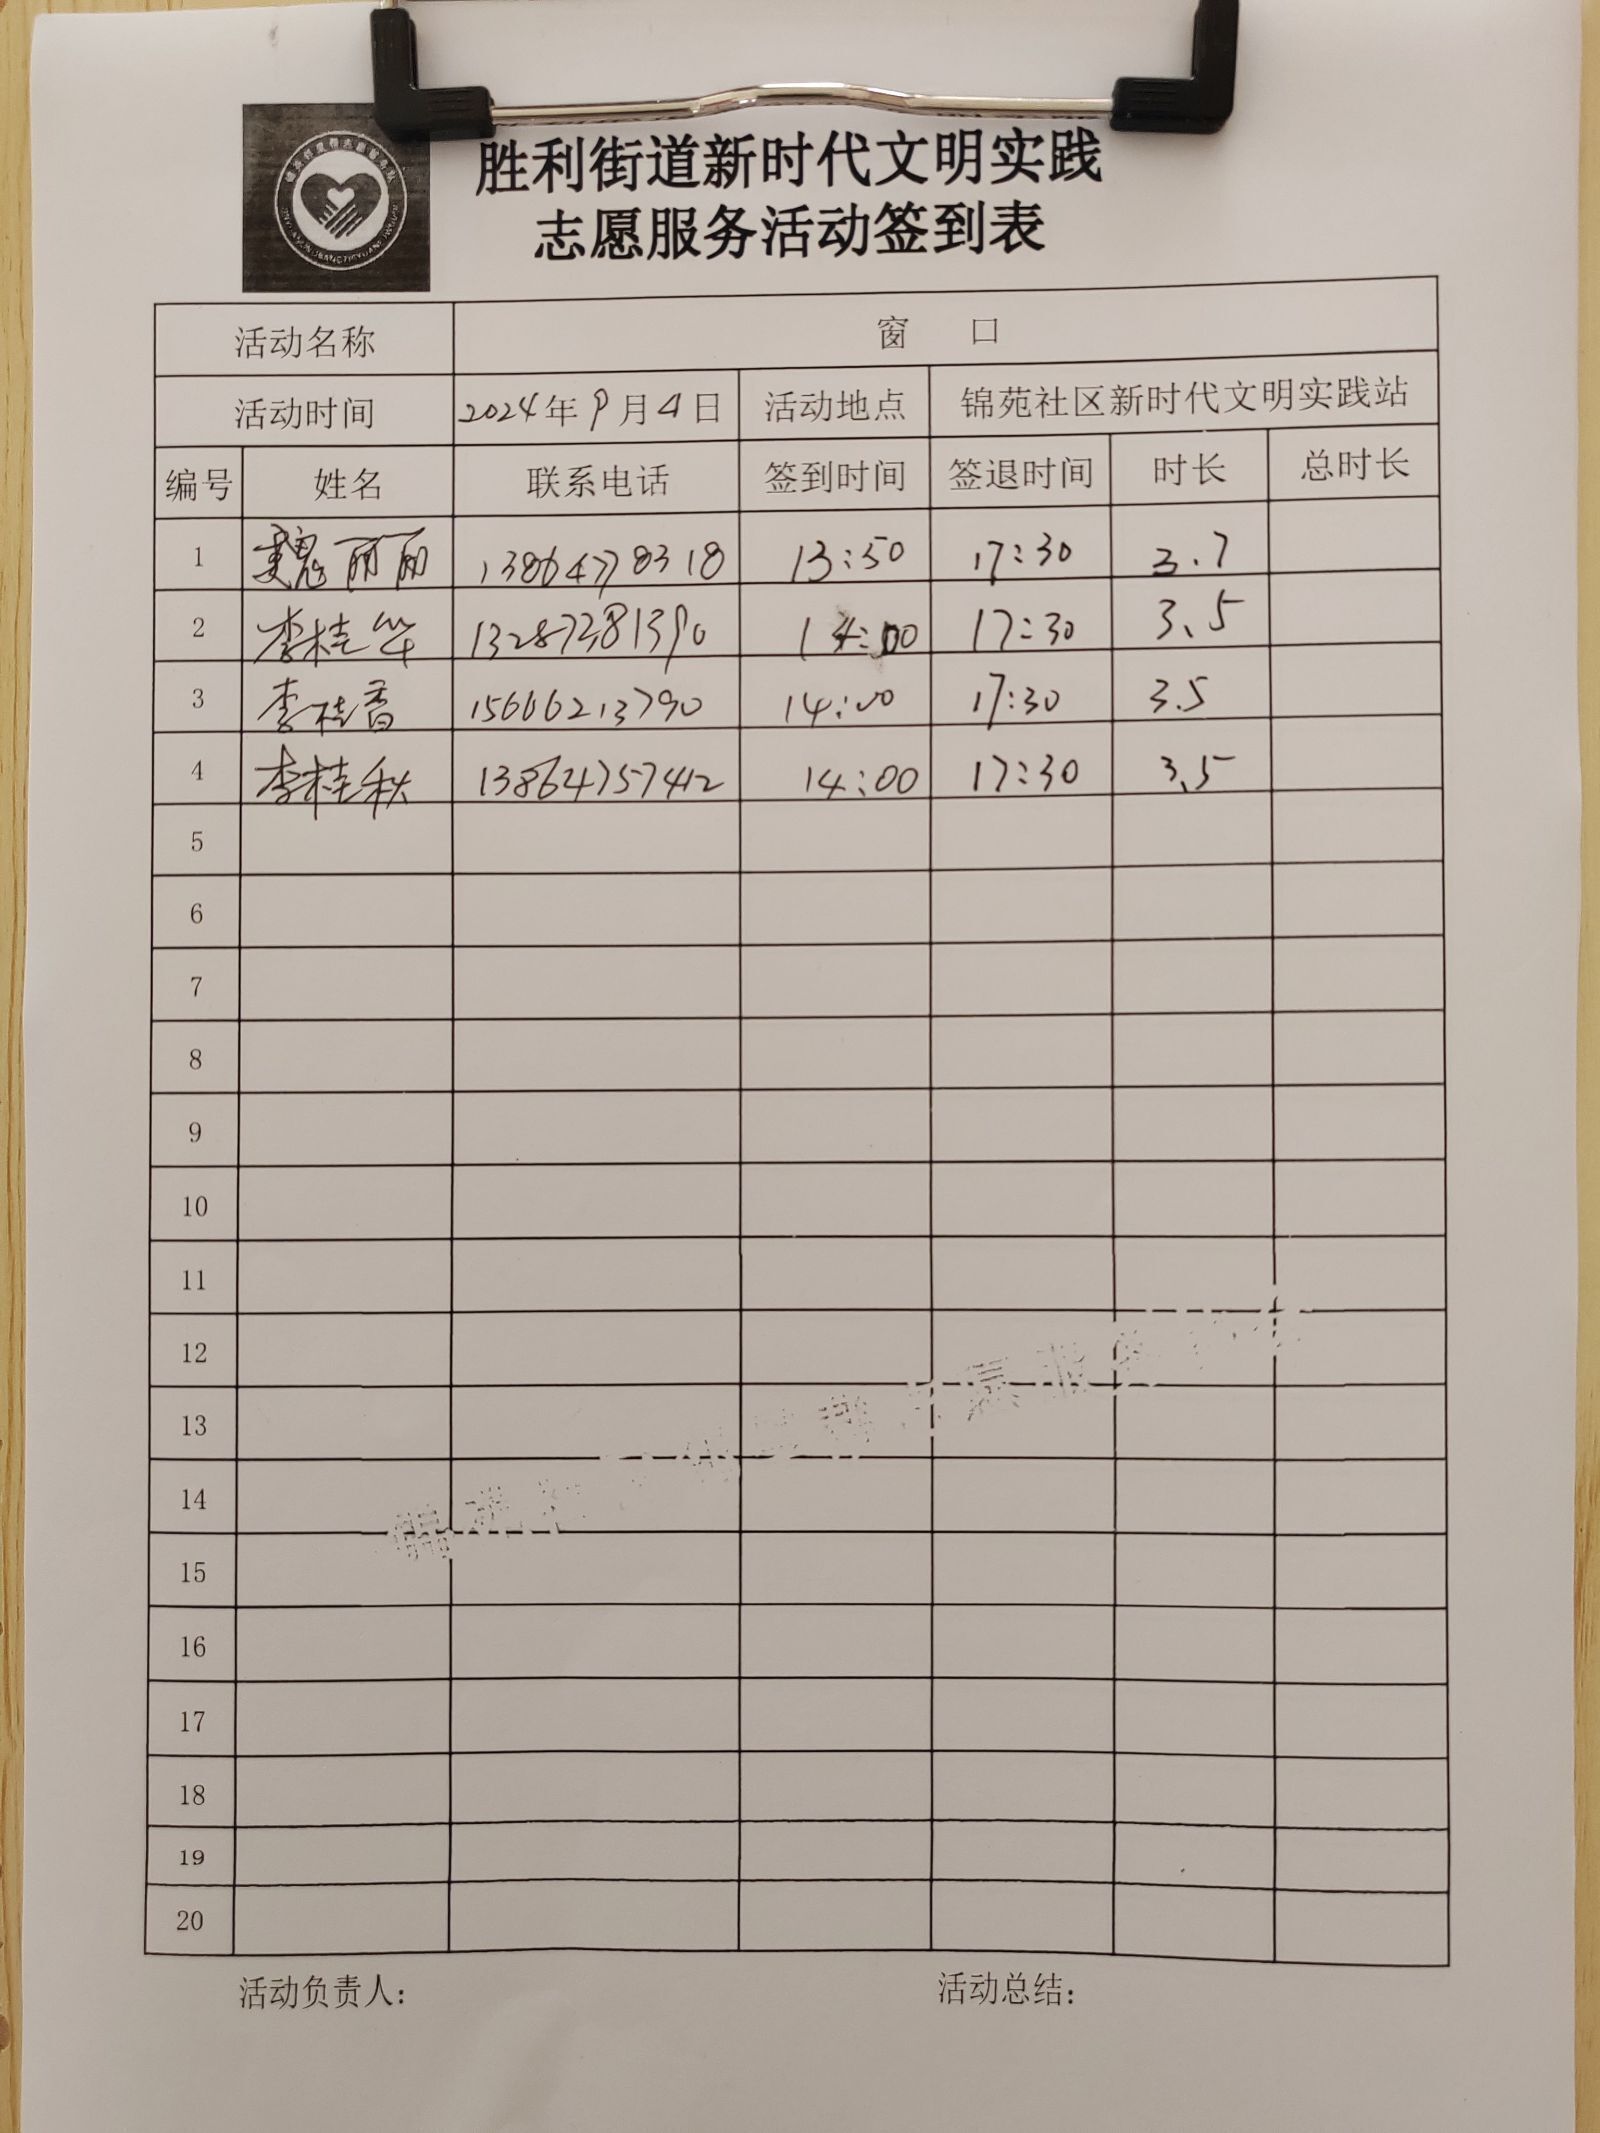 胜利街道新时代文明实践
志愿服务活动签到表
活动名称 窗 口
活动时间 2024年9月4日 活动地点 锦苑社区新时代文明实践站
编号 姓名 联系电话 签到时间 签退时间 时长 总时长
1 魏丽丽 13864778318 13:50 17:30 3.7
2 李桂华 13287281390 14:00 17:30 3.5
3 李桂香 15666213790 14:00 17:30 3.5
4 李桂秋 13864757412 14:00 17:30 3.5
5
6
7
8
9
10
11
12
13
14
15
16
17
18
19
20
活动负责人: 活动总结: